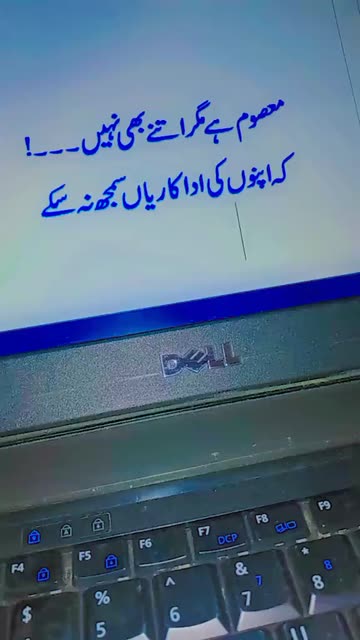 معصوم ہے مگر اتنے بھی نہیں ۔۔۔!
کہ اپنوں کی اداکاریاں سمجھ نہ سکے
DELL
F4 F5 F6 F7 DCP F8 F9
$ % 5 ^ 6 & 7 7 * 8 8
U